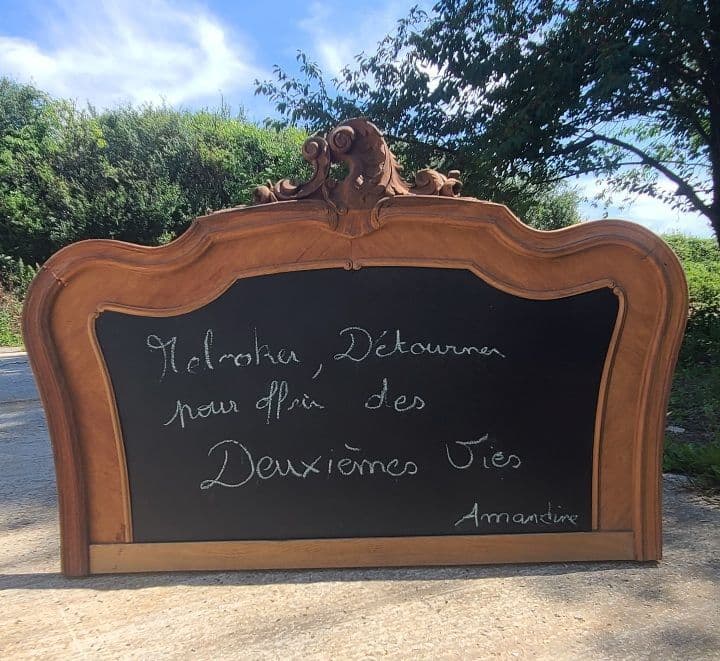 Relooker, Détourner
pour offrir des
Deuxièmes Vies
Amandine